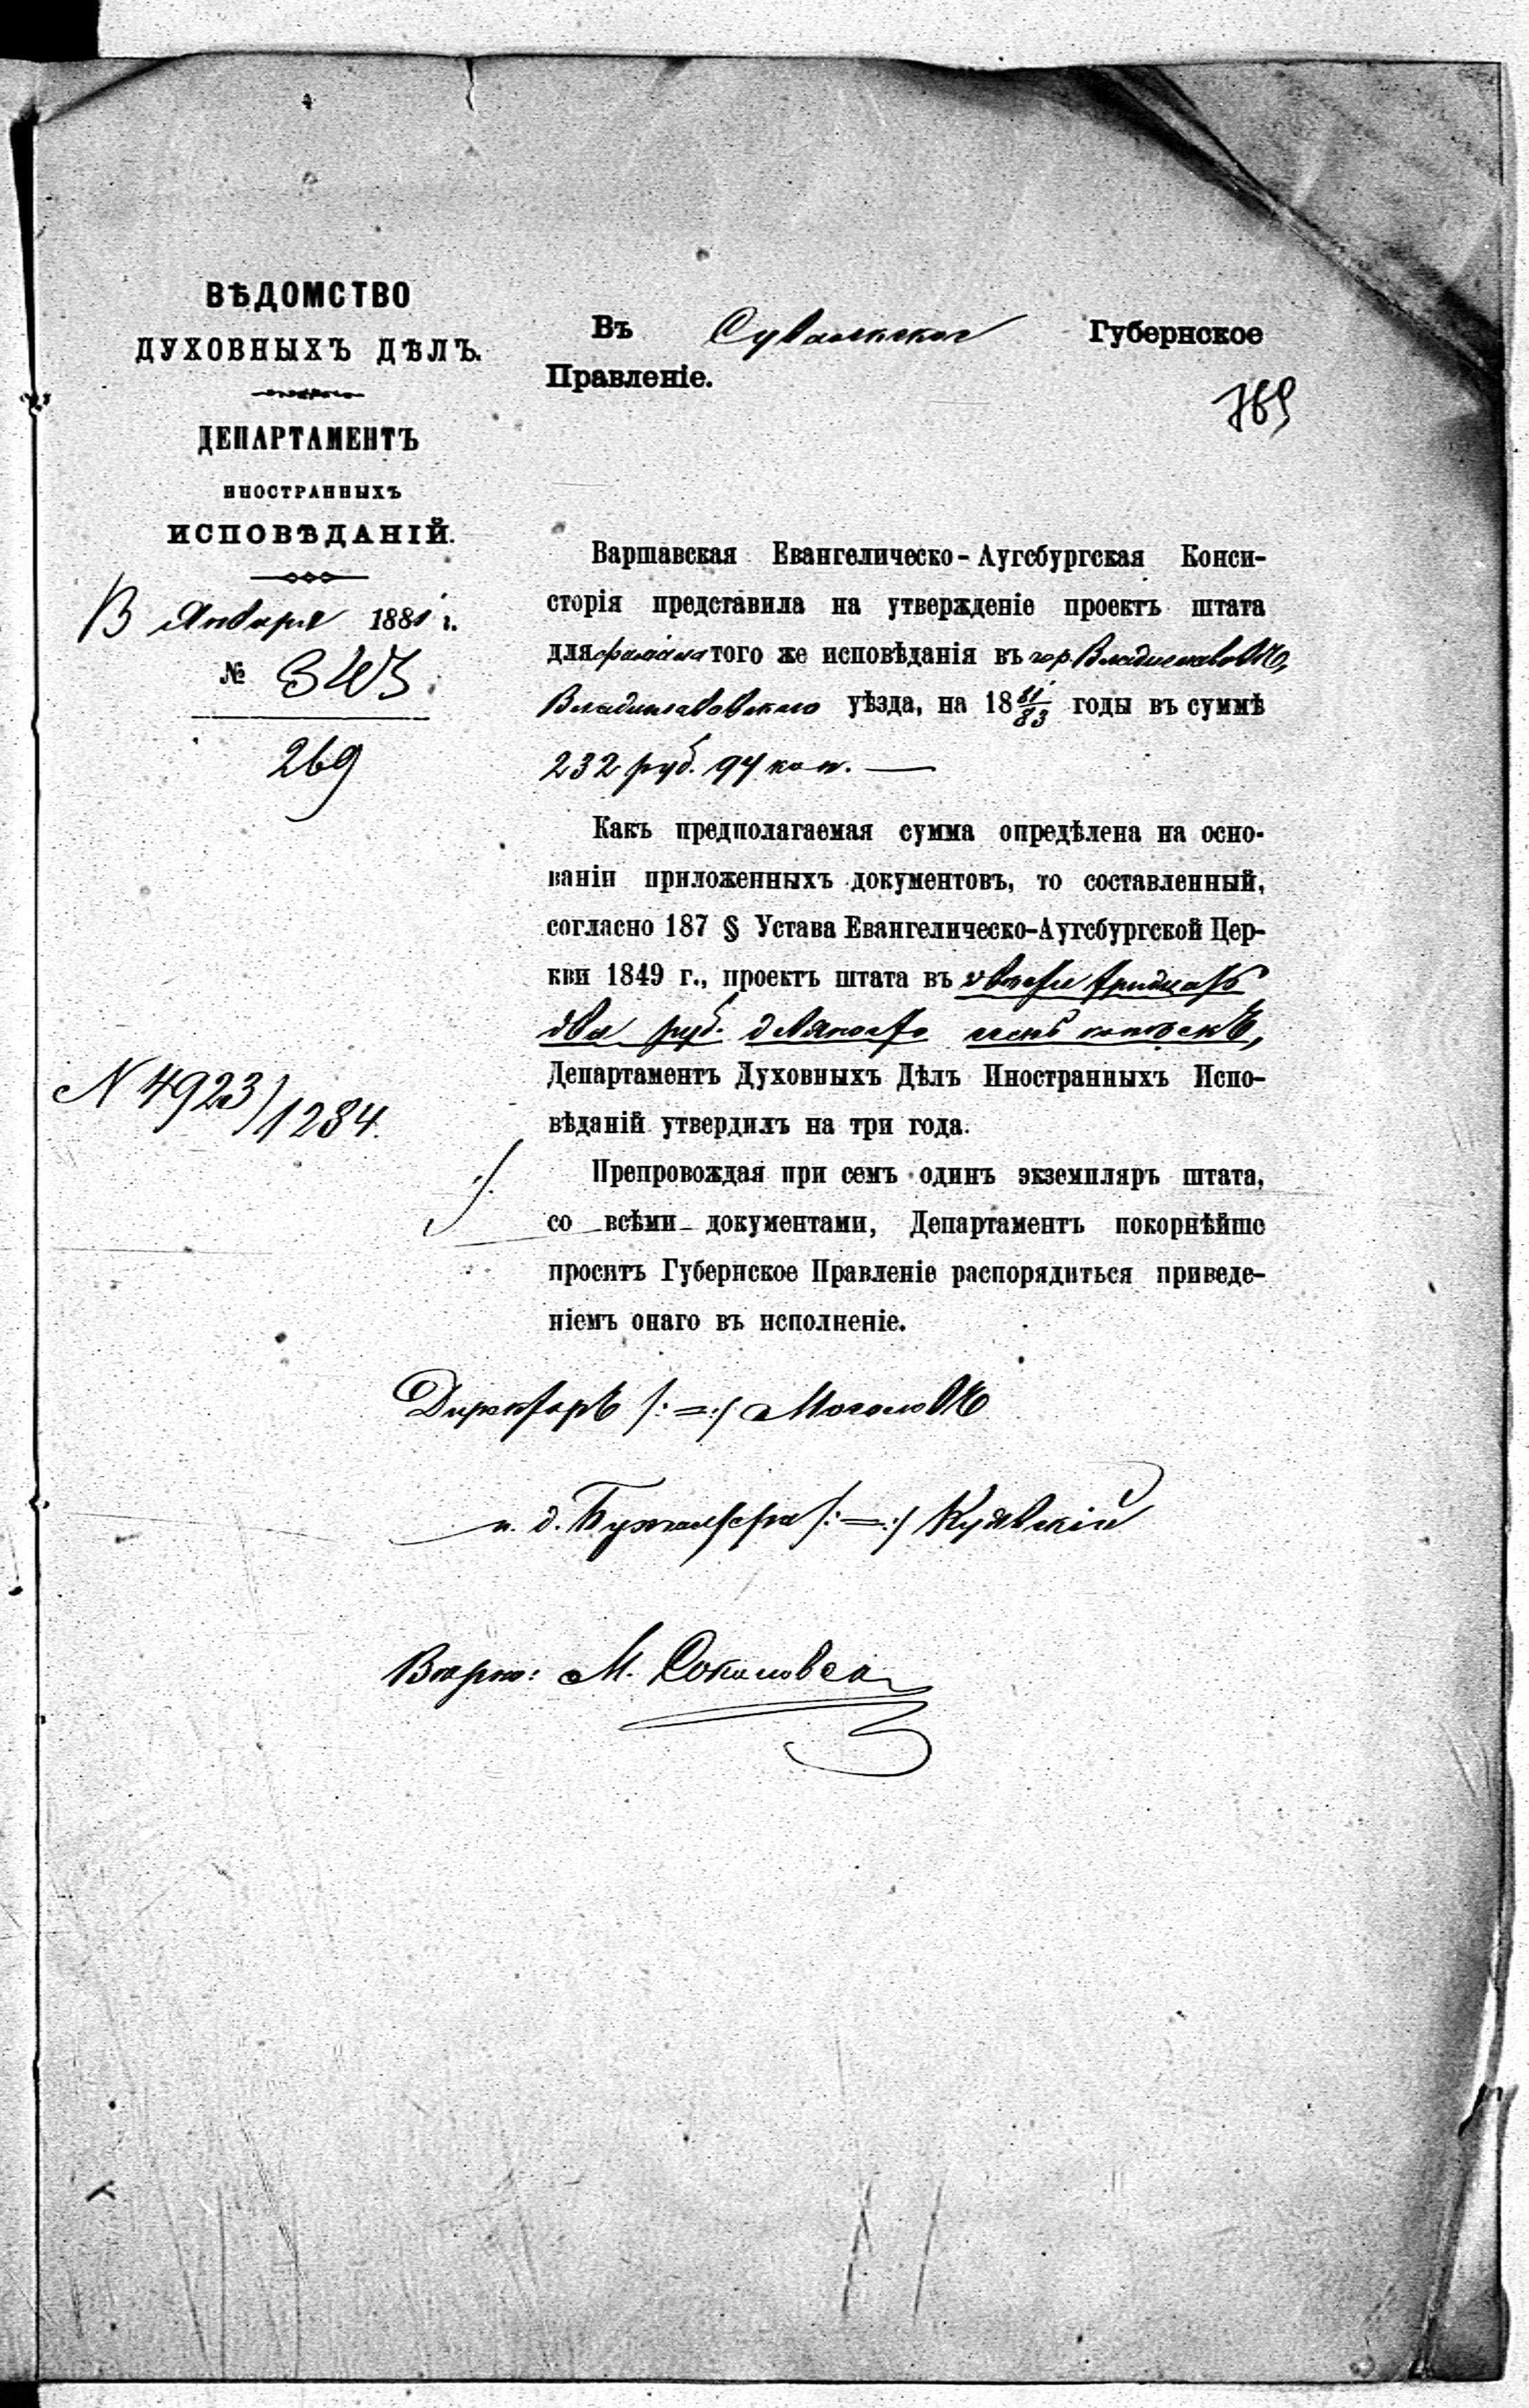 ВѢДОМСТВО
ДУХОВНЫХЪ ДѢЛЪ.
ДЕПАРТАМЕНТЪ
ИНОСТРАННЫХЪ
ИСПОВѢДАНІЙ.
13 Января 1881 г.
№
269
N 4923/1284.
Въ Сувалкское Губернское
Правленіе.
769
Варшавская Евангелическо-Аугсбургская Конси-
сторія представила на утвержденіе проектъ штата
для филіала того же исповѣданія въ гор. Владиславовѣ,
Владиславовскаго уѣзда, на 18 81/83 годы въ суммѣ
232 руб. 97 коп. —
Какъ предполагаемая сумма опредѣлена на осно-
ваніи приложенныхъ документовъ, то составленный,
согласно 187 § Устава Евангелическо-Аугсбургской Цер-
кви 1849 г., проектъ штата въ двѣсти тридцать
два руб. девяносто семь копѣекъ,
Департаментъ Духовныхъ Дѣлъ Иностранныхъ Испо-
вѣданій утвердилъ на три года.
Препровождая при семъ одинъ экземпляръ штата,
со всѣми документами, Департаментъ покорнѣйше
проситъ Губернское Правленіе распорядиться приведе-
ніемъ онаго въ исполненіе.
Директоръ /:=:/ Мосоловъ
и. д. Бухгалтера /:=:/ Куявскій
Вѣрно: М. Соколовск